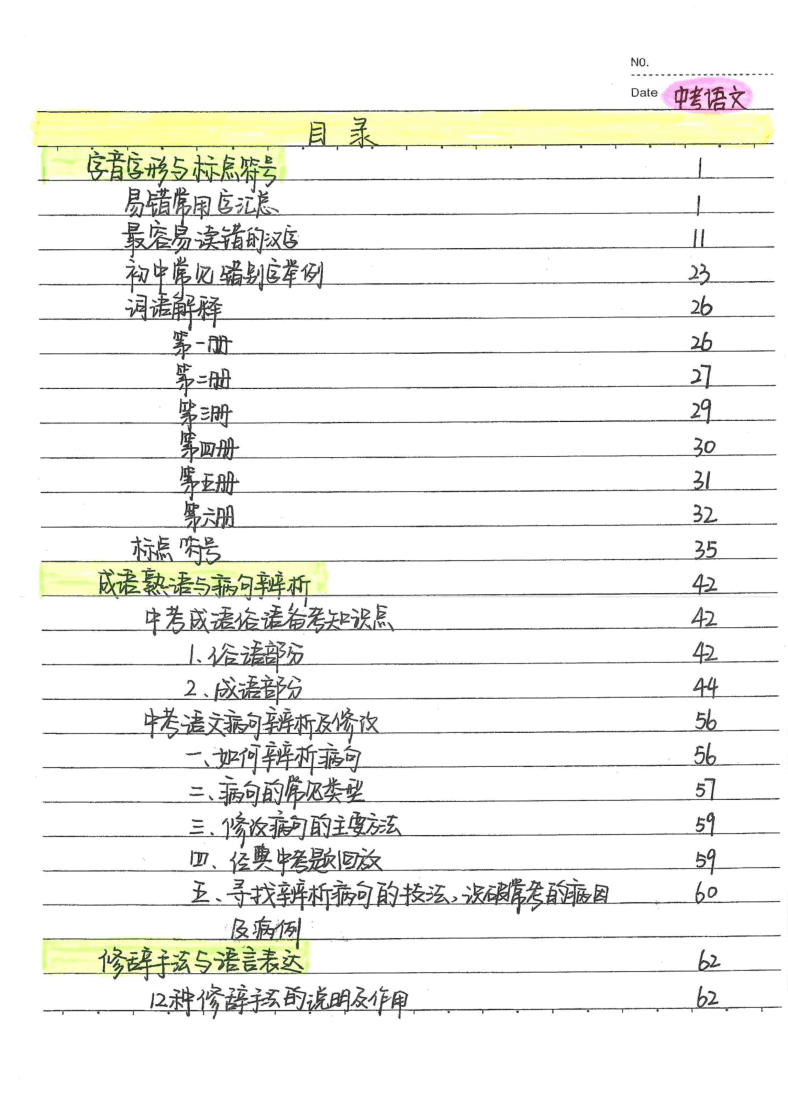 NO.
Date 中考语文
目录
字音字形与标点符号 1
易错常用字汇总 1
最容易读错的汉字 11
初中常见错别字举例 23
词语解释 26
第一册 26
第二册 27
第三册 29
第四册 30
第五册 31
第六册 32
标点符号 35
成语熟语与病句辨析 42
中考成语俗语备考知识点 42
1、俗语部分 42
2、成语部分 44
中考语文病句辨析及修改 56
一、如何辨析病句 56
二、病句的常见类型 57
三、修改病句的主要方法 59
四、经典中考题回放 59
五、寻找辨析病句的技法，识破常考的病因 60
及病例
修辞手法与语言表达 62
12种修辞手法的说明及作用 62